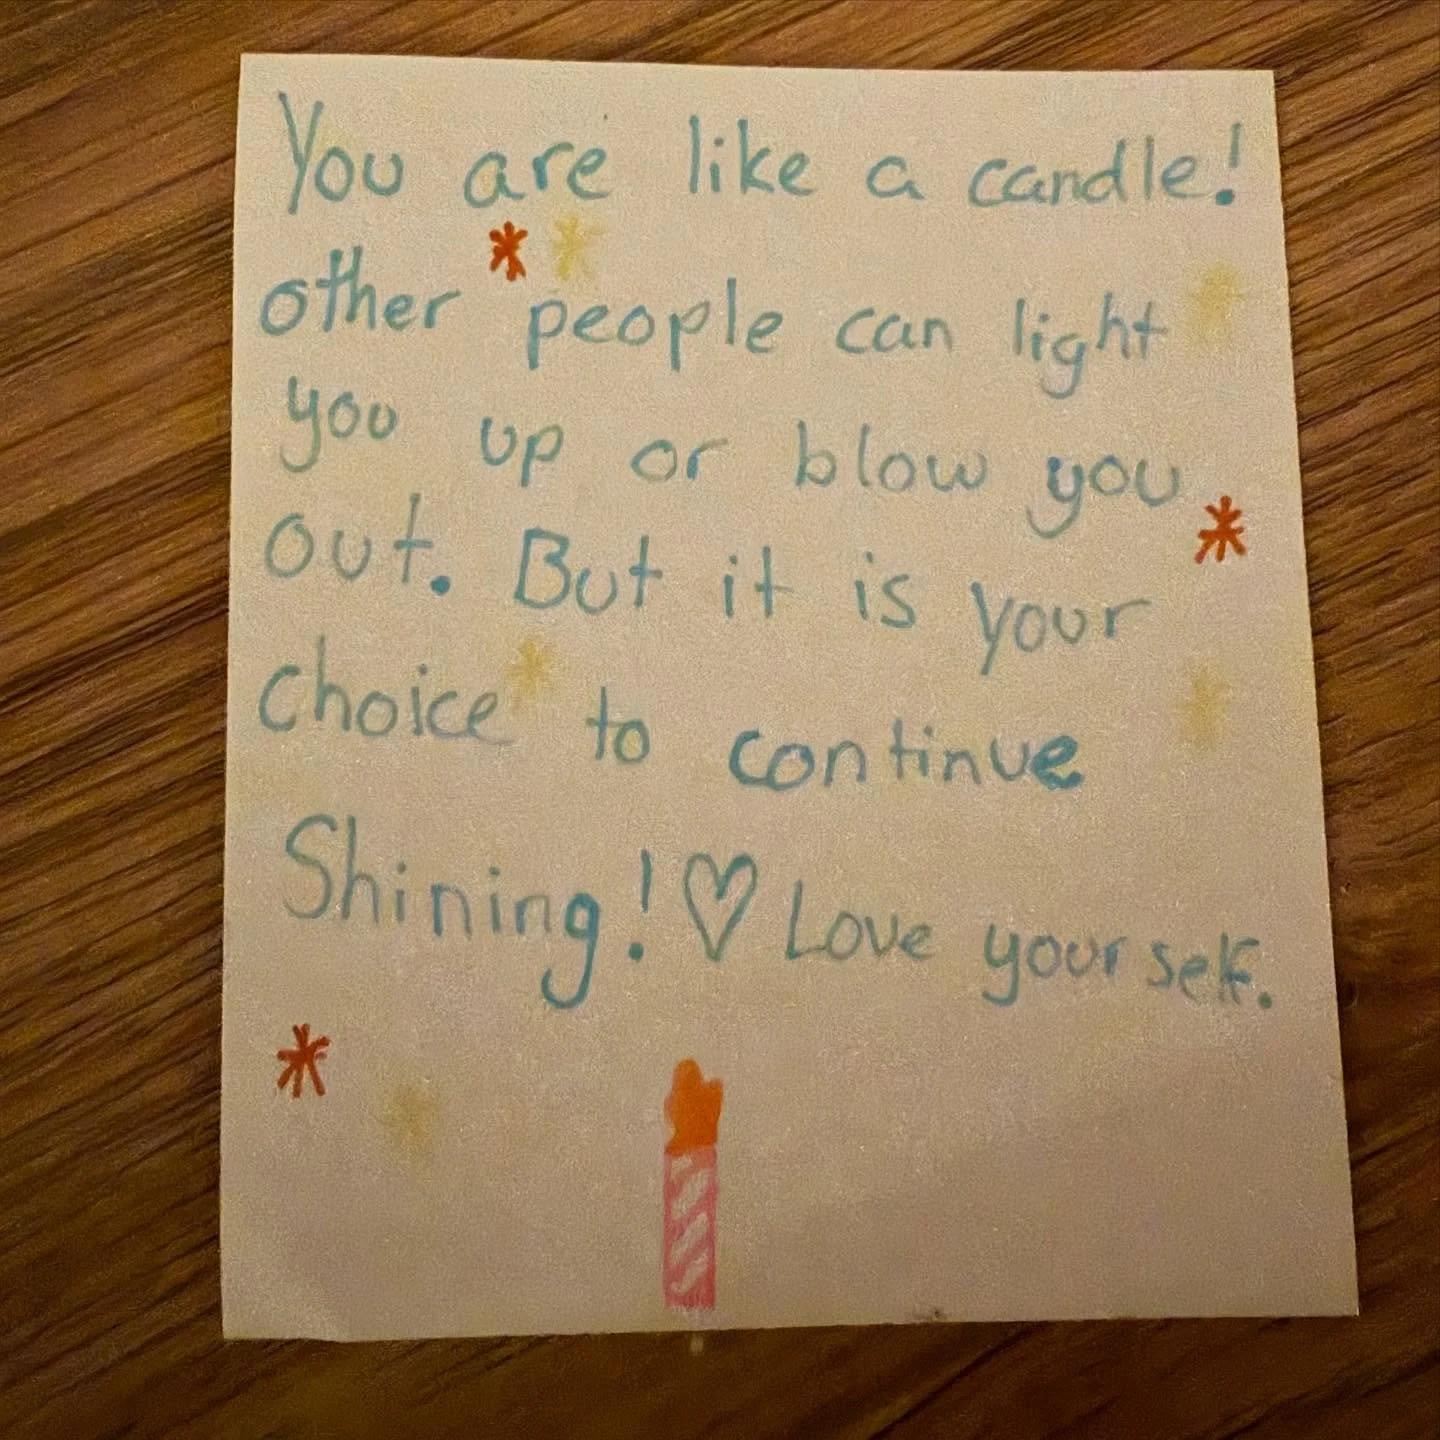 You are like a candle!
other people can light
you up or blow you
out. But it is your
choice to continue
Shining! ♡ Love your self.